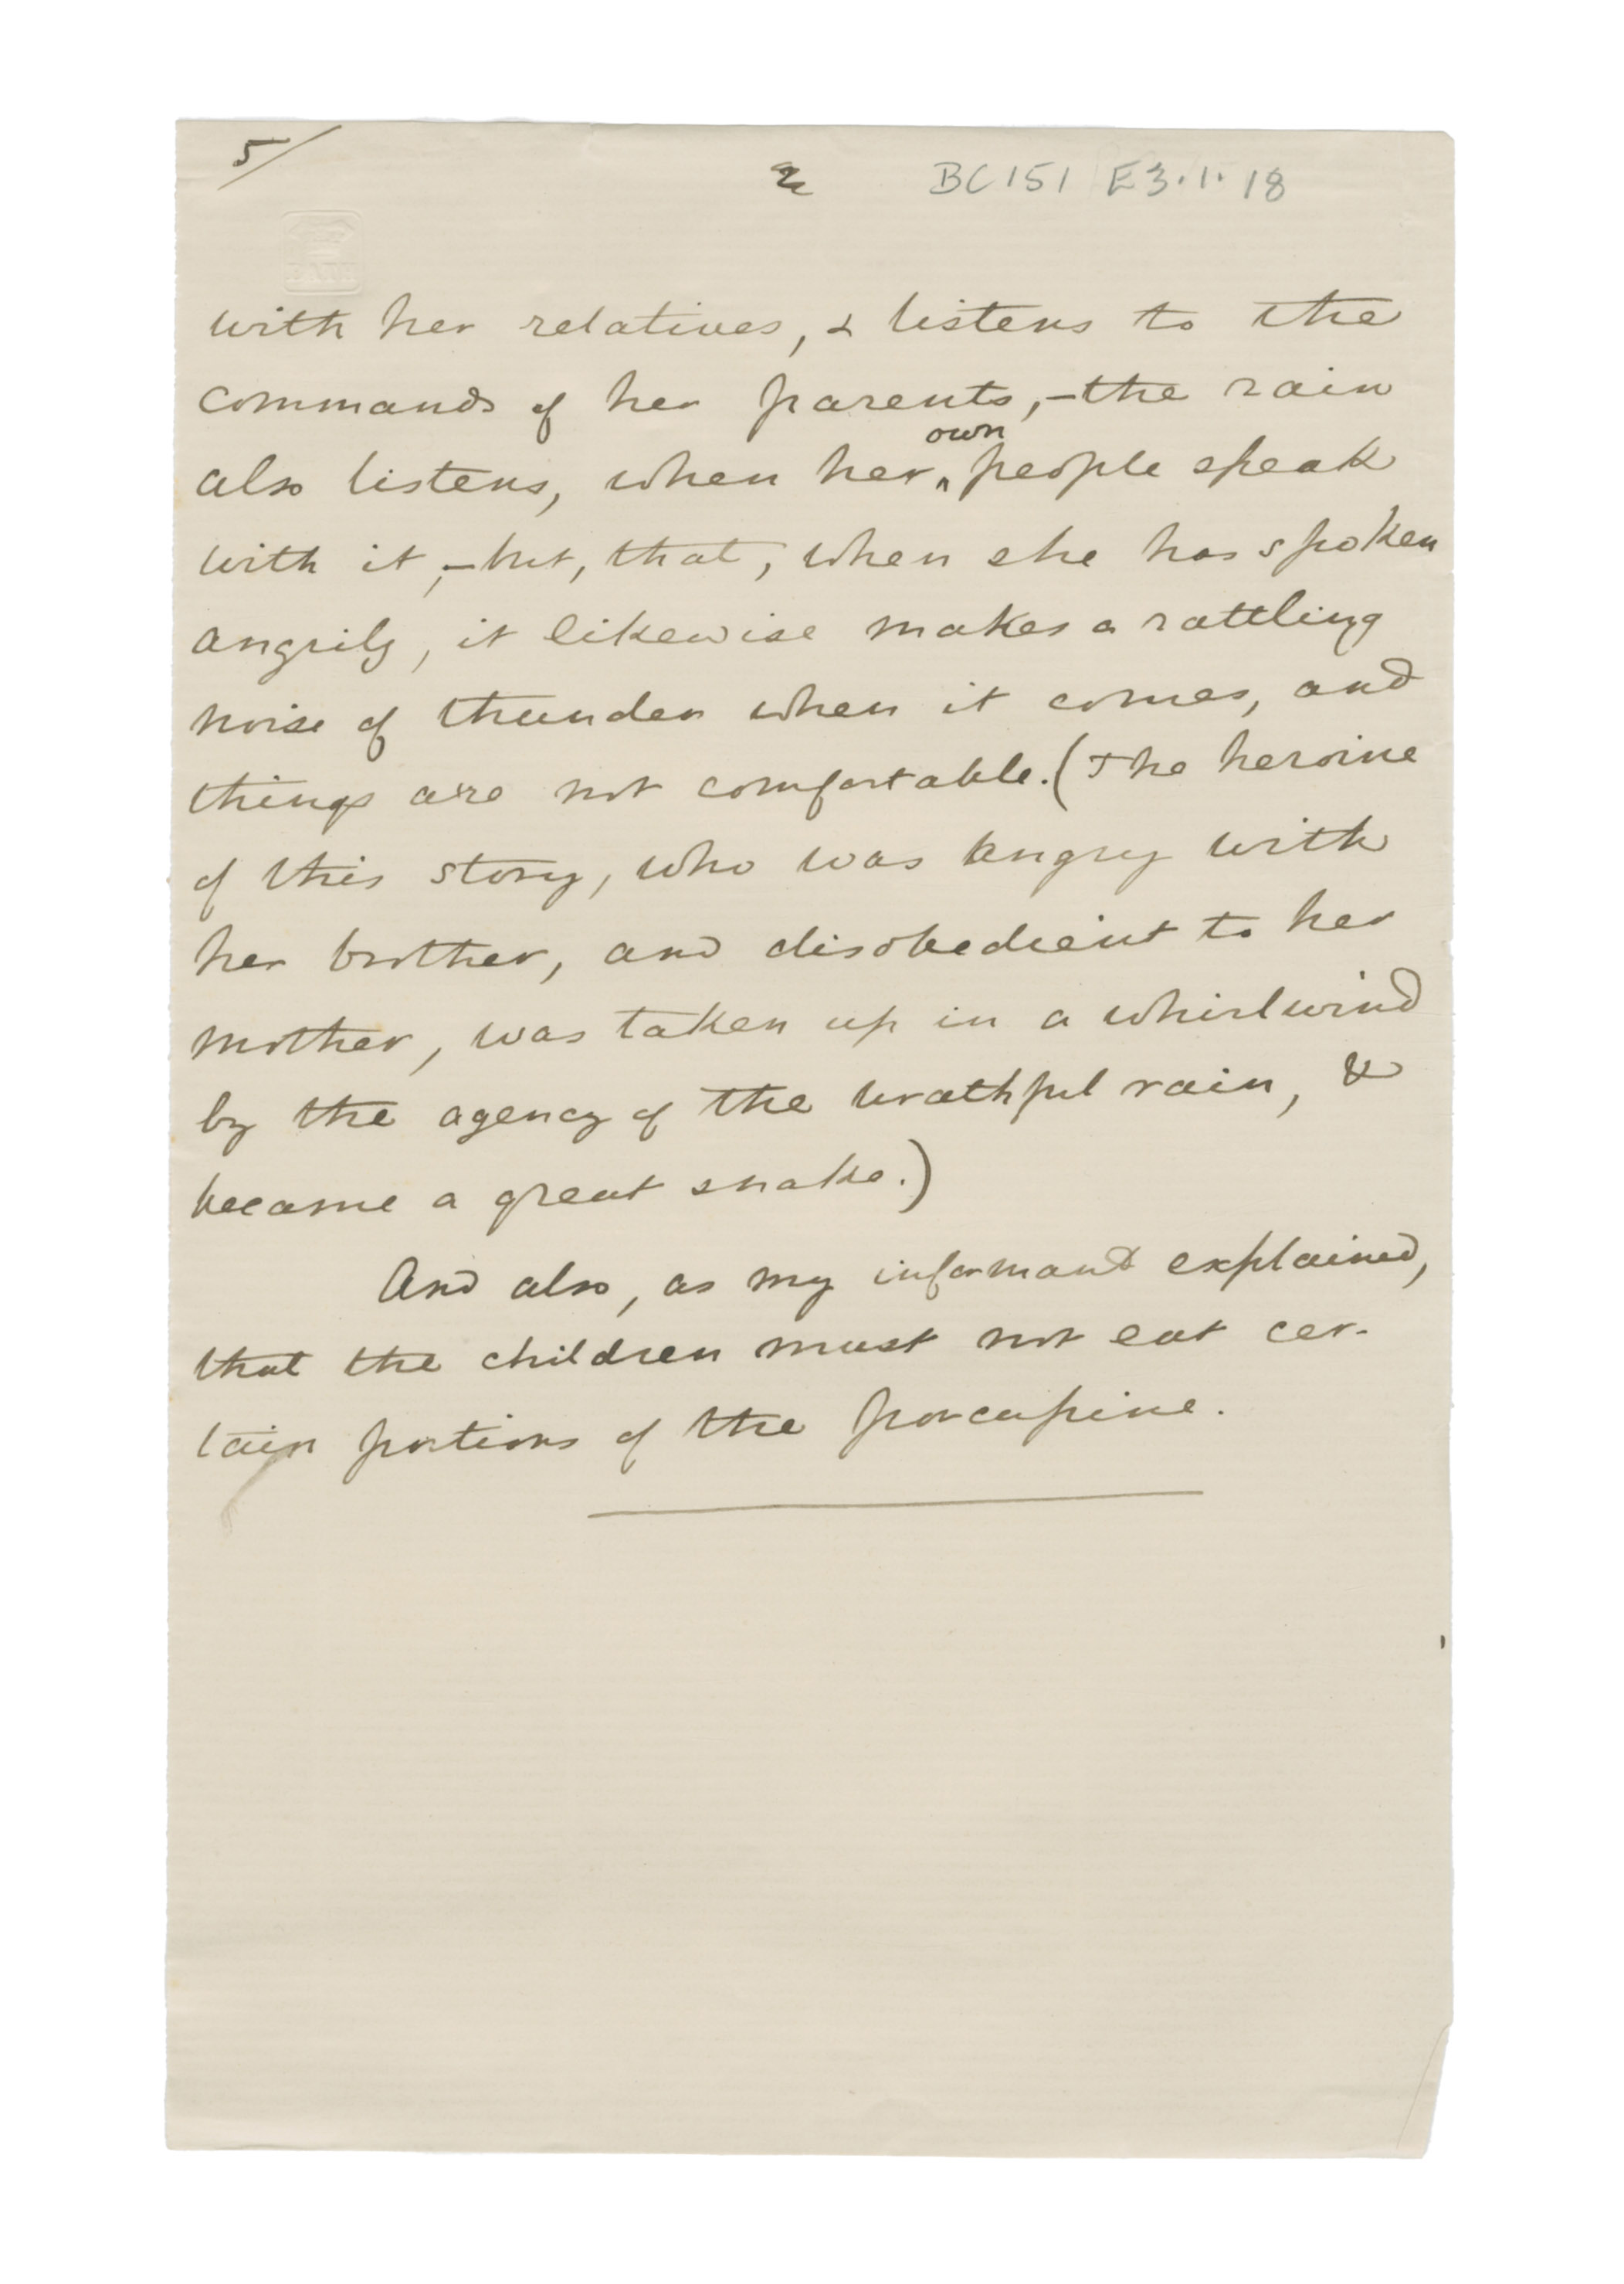 5/
2
BC151 E3.1.18
with her relatives, & listens to the
commands of her parents,-the rain
also listens, when her own people speak
with it,-but, that, when she has spoken
angrily, it likewise makes a rattling
noise of thunder when it comes, and
things are not comfortable. (The heroine
of this story, who was angry with
her brother, and disobedient to her
mother, was taken up in a whirlwind
by the agency of the wrathful rain, &
became a great snake.)
And also, as my informant explained,
that the children must not eat cer-
tain portions of the porcupine.